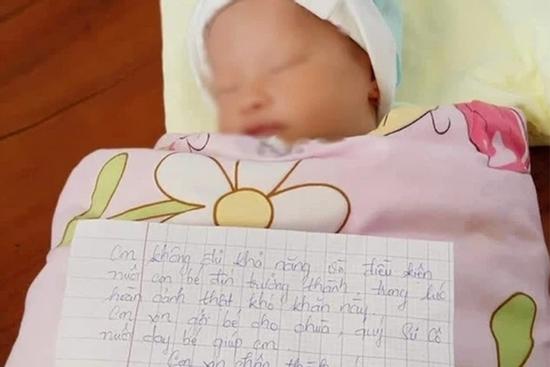 Cm không đủ khả năng và điều kiện
nuôi con bé đến trưởng thành, trong lúc
hoàn cảnh thật khó khăn này.
Cm xin gởi bé cho chùa, quý Sư Cô
nuôi dạy bé giúp cm
Con xin chân thành